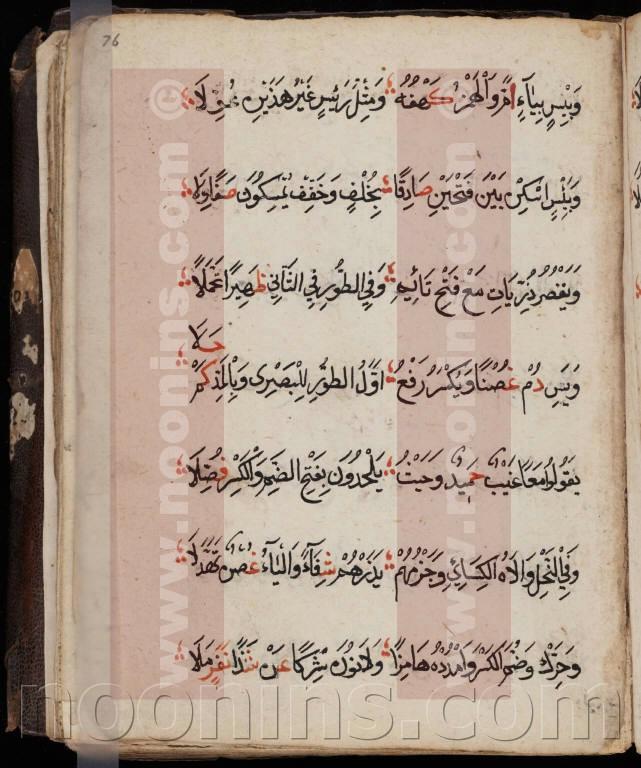 76
وَبِيسٍ بِيَاءٍ أَمَّ وَالْهَمْزُ كَهْفُهُ وَمِثْلَ رَئِيسٍ غَيْرُ هَذَيْنِ عَوَّلَا
وَبَيْئَسٍ اسْكِنْ بَيْنَ فَتْحَيْنِ صَادِقًا بِخُلْفٍ وَخَفِّفْ يُمْسِكُونَ صَفَا وِلَا
وَيَقْصُرُ ذُرِّيَّاتِ مَعْ فَتْحِ تَائِهِ وَفِي الطُّورِ فِي الثَّانِي ظَهِيرٌ تَحَمَّلَا
وَيَس دُمْ غُصْنًا وَيُكْسَرُ رَفْعُ أَوَّلِ الطُّورِ لِلْبَصْرِى وَبِالْمَدِّ كَمْ حَلَا
يَقُولُوا مَعًا غَيْبٌ حَمِيدٌ وَحَيْثُ يُلْحِدُونَ بِفَتْحِ الضَّمِّ وَالْكَسْرِ فُصِّلَا
وَفِي النَّحْلِ وَالَاهُ الْكِسَائِي وَجَزْمُهُمْ يَذَرْهُمْ شَفَا وَالْيَاءُ غُصْنٌ تَهَدَّلَا
وَحَرِّكْ وَضُمَّ الْكَسْرَ وَامْدُدْهُ هَامِزًا وَلَا نُونَ شِرْكًا عَنْ شَذَا نَفَرٍ مَلَا
© www.noonins.com
© www.noonins.com
noonins.com